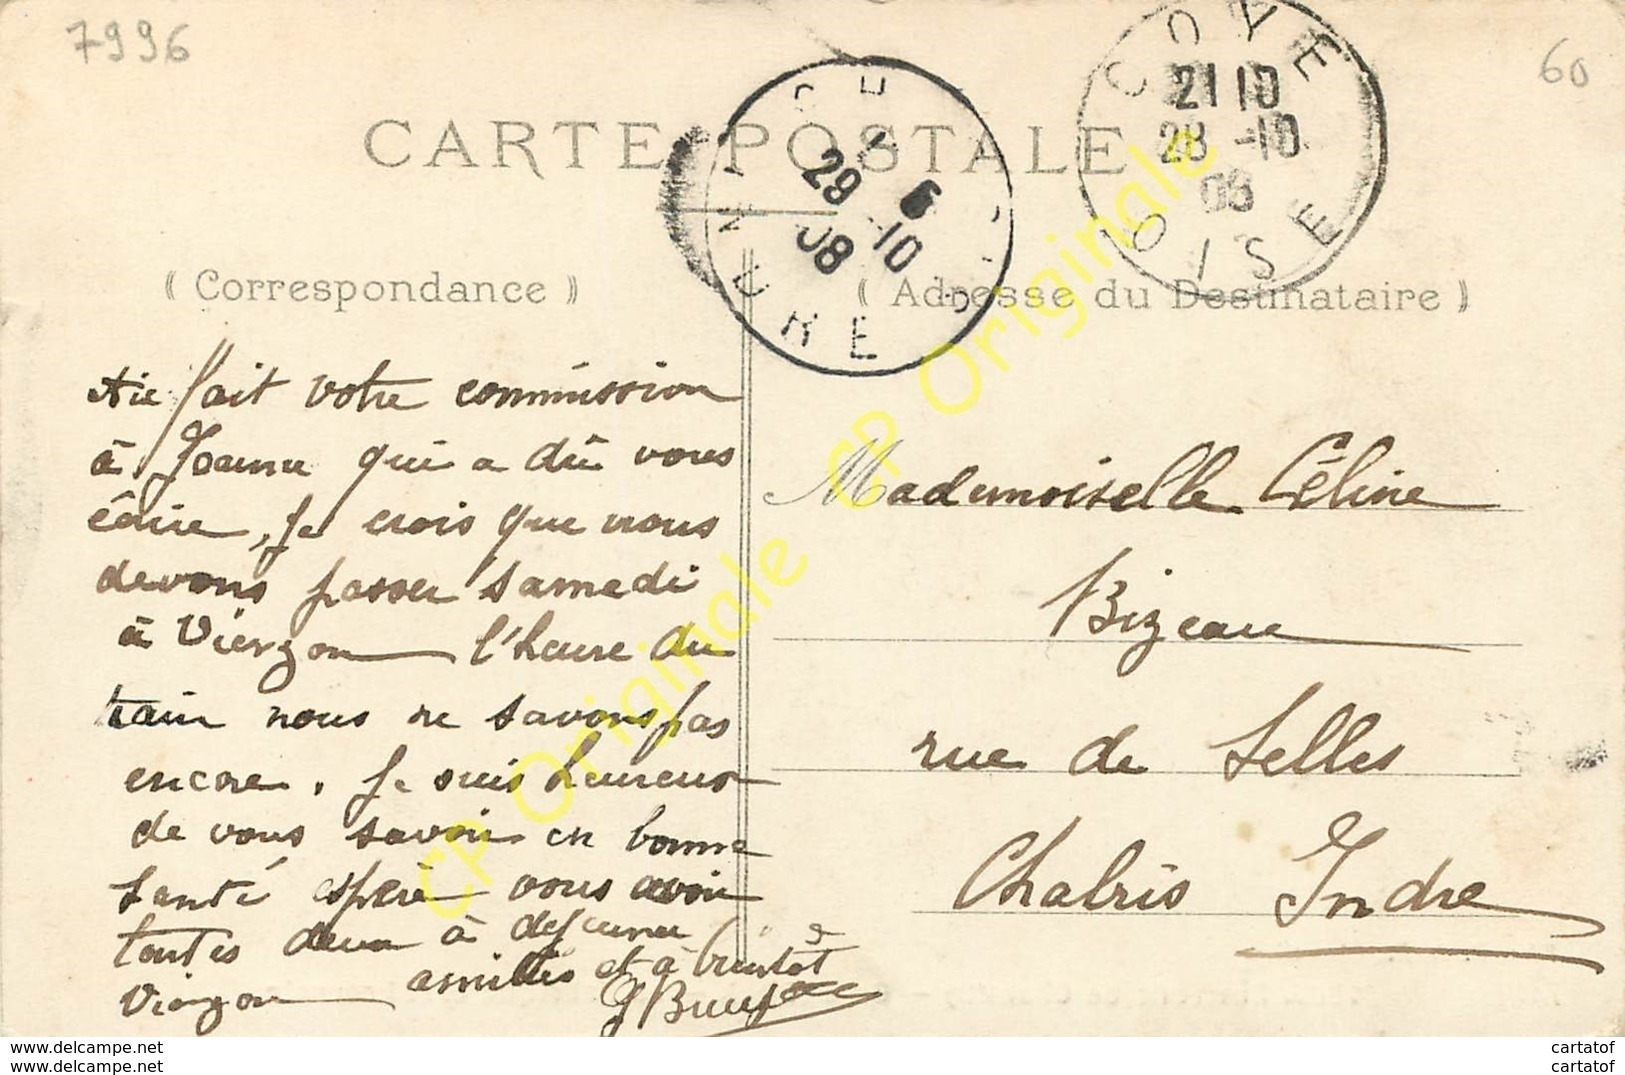 7996
60
CARTE POSTALE
COYE
21 10
28 -10
08
OISE
6
29 -10
08
INDRE
( Correspondance )
( Adresse du Destinataire )
fait votre commission
à Jeanne qui a dû vous
écrire, je crois que nous
devons passer samedi
à Vierzon l'heure du
train nous ne savons pas
encore. Je suis heureux
de vous savoir en bonne
santé espère vous avoir
toutes deux à dejeuner
Vierzon amitiés et à bientôt
Mademoiselle Céline
Bizeau
rue de Selles
Chabris Indre
CP Originale CP Originale
www.delcampe.net
cartatof